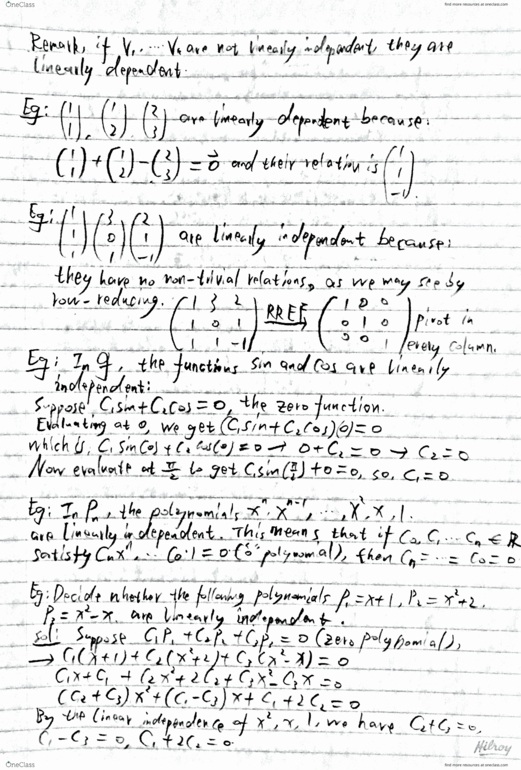 OneClass
find more resources at oneclass.com
Remark, if V₁, ... Vₙ are not linearly independent, they are
linearly dependent.
Eg: (1 1 1), (1 1 2), (2 2 3) are linearly dependent because:
(1 1 1) + (1 1 2) - (2 2 3) = 0⃗ and their relation is (1 1 -1).
Eg: (1 1 1) (3 0 1) (2 1 -1) are linearly independent because:
they have no non-trivial relations, as we may see by
row-reducing. (1 3 2 / 1 0 1 / 1 1 -1) RREF→ (1 0 0 / 0 1 0 / 0 0 1) pivot in
every column.
Eg: In F, the functions sin and cos are linearly
independent:
Suppose C₁sin + C₂cos = 0, the zero function.
Evaluating at 0, we get (C₁sin + C₂cos)(0) = 0
which is, C₁sin(0) + C₂cos(0) = 0 → 0 + C₂ = 0 → C₂ = 0
Now evaluate at π/2 to get C₁sin(π/2) + 0 = 0, so, C₁ = 0.
Eg: In Pₙ, the polynomials xⁿ, xⁿ⁻¹, ..., x², x, 1.
are linearly independent. This means that if C₀, C₁ ... Cₙ ∈ ℝ
satisfy Cₙxⁿ, ... C₀·1 = 0 ("0" polynomial), then Cₙ = ... = C₀ = 0
Eg: Decide whether the following polynomials P₁ = x+1, P₂ = x²+2.
P₃ = x²-x. are linearly independent.
Sol: Suppose C₁P₁ + C₂P₂ + C₃P₃ = 0 (zero polynomial),
→ C₁(x+1) + C₂(x²+2) + C₃(x²-x) = 0
C₁x + C₁ + C₂x² + 2C₂ + C₃x² - C₃x = 0
(C₂+C₃)x² + (C₁-C₃)x + C₁ + 2C₂ = 0
By the linear independence of x², x, 1, we have C₂+C₃ = 0,
C₁-C₃ = 0, C₁+2C₂ = 0.
Hilroy
OneClass
find more resources at oneclass.com